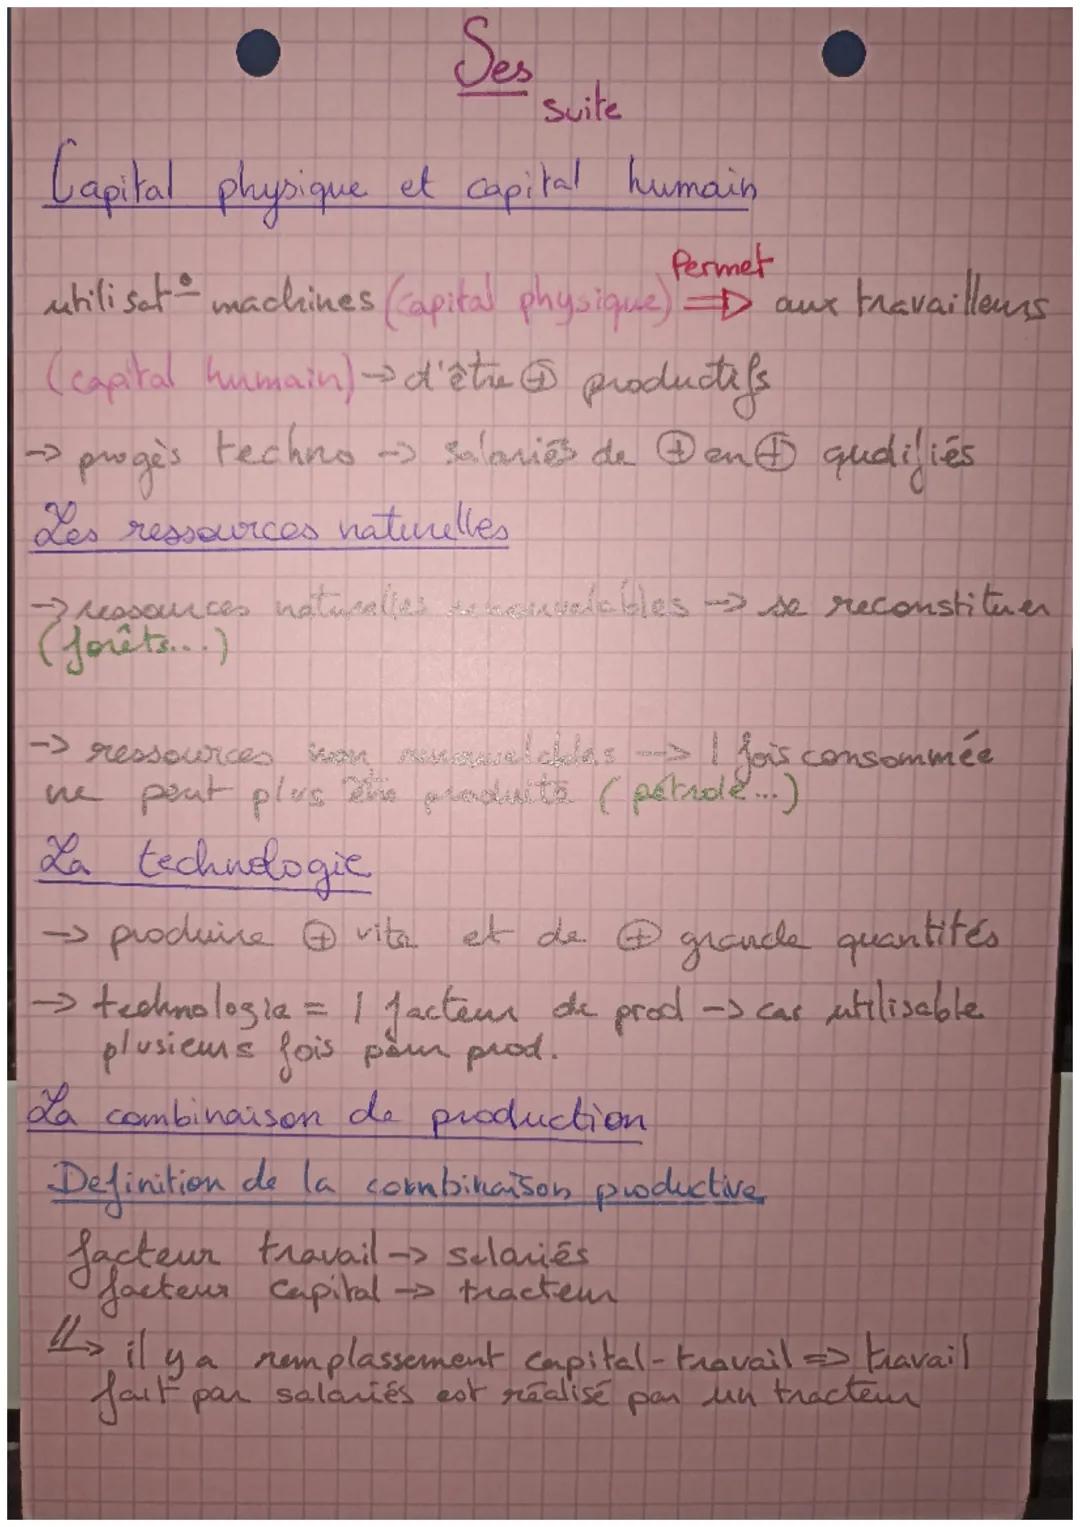 Ses
suite
Capital physique et capital humain
Permet
utilisat° machines (capital physique) => aux travailleurs
(capital humain) -> d'être ⊕ productifs
-> progès techno -> salariés de ⊕ en ⊕ qualifiés
Les ressources naturelles
-> ressources naturelles renouvelables -> se reconstituer
(forêts...)
-> ressources non renouvelables -> 1 fois consommée
ne peut plus être produite (pétrole...)
La technologie
-> produire ⊕ vite et de ⊕ grande quantités
-> technologie = 1 facteur de prod -> car utilisable
plusieurs fois pour prod.
La combinaison de production
Definition de la combinaison productive
facteur travail -> salariés
facteur capital -> tracteur
↳ il y a remplassement capital-travail => travail
fait par salariés est réalisé par un tracteur